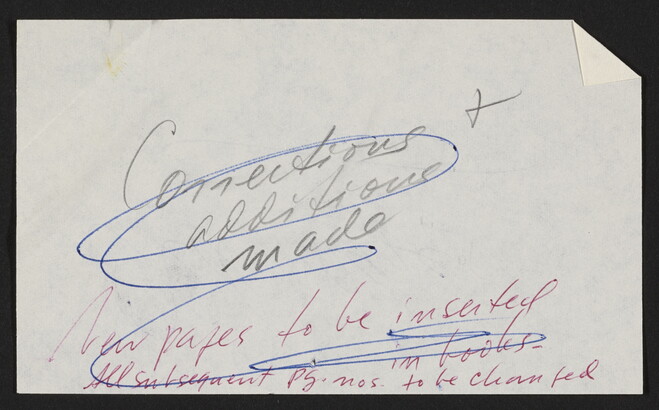 Corrections +
additions
made
New pages to be inserted
in books-
All subsequent pg. nos. to be changed